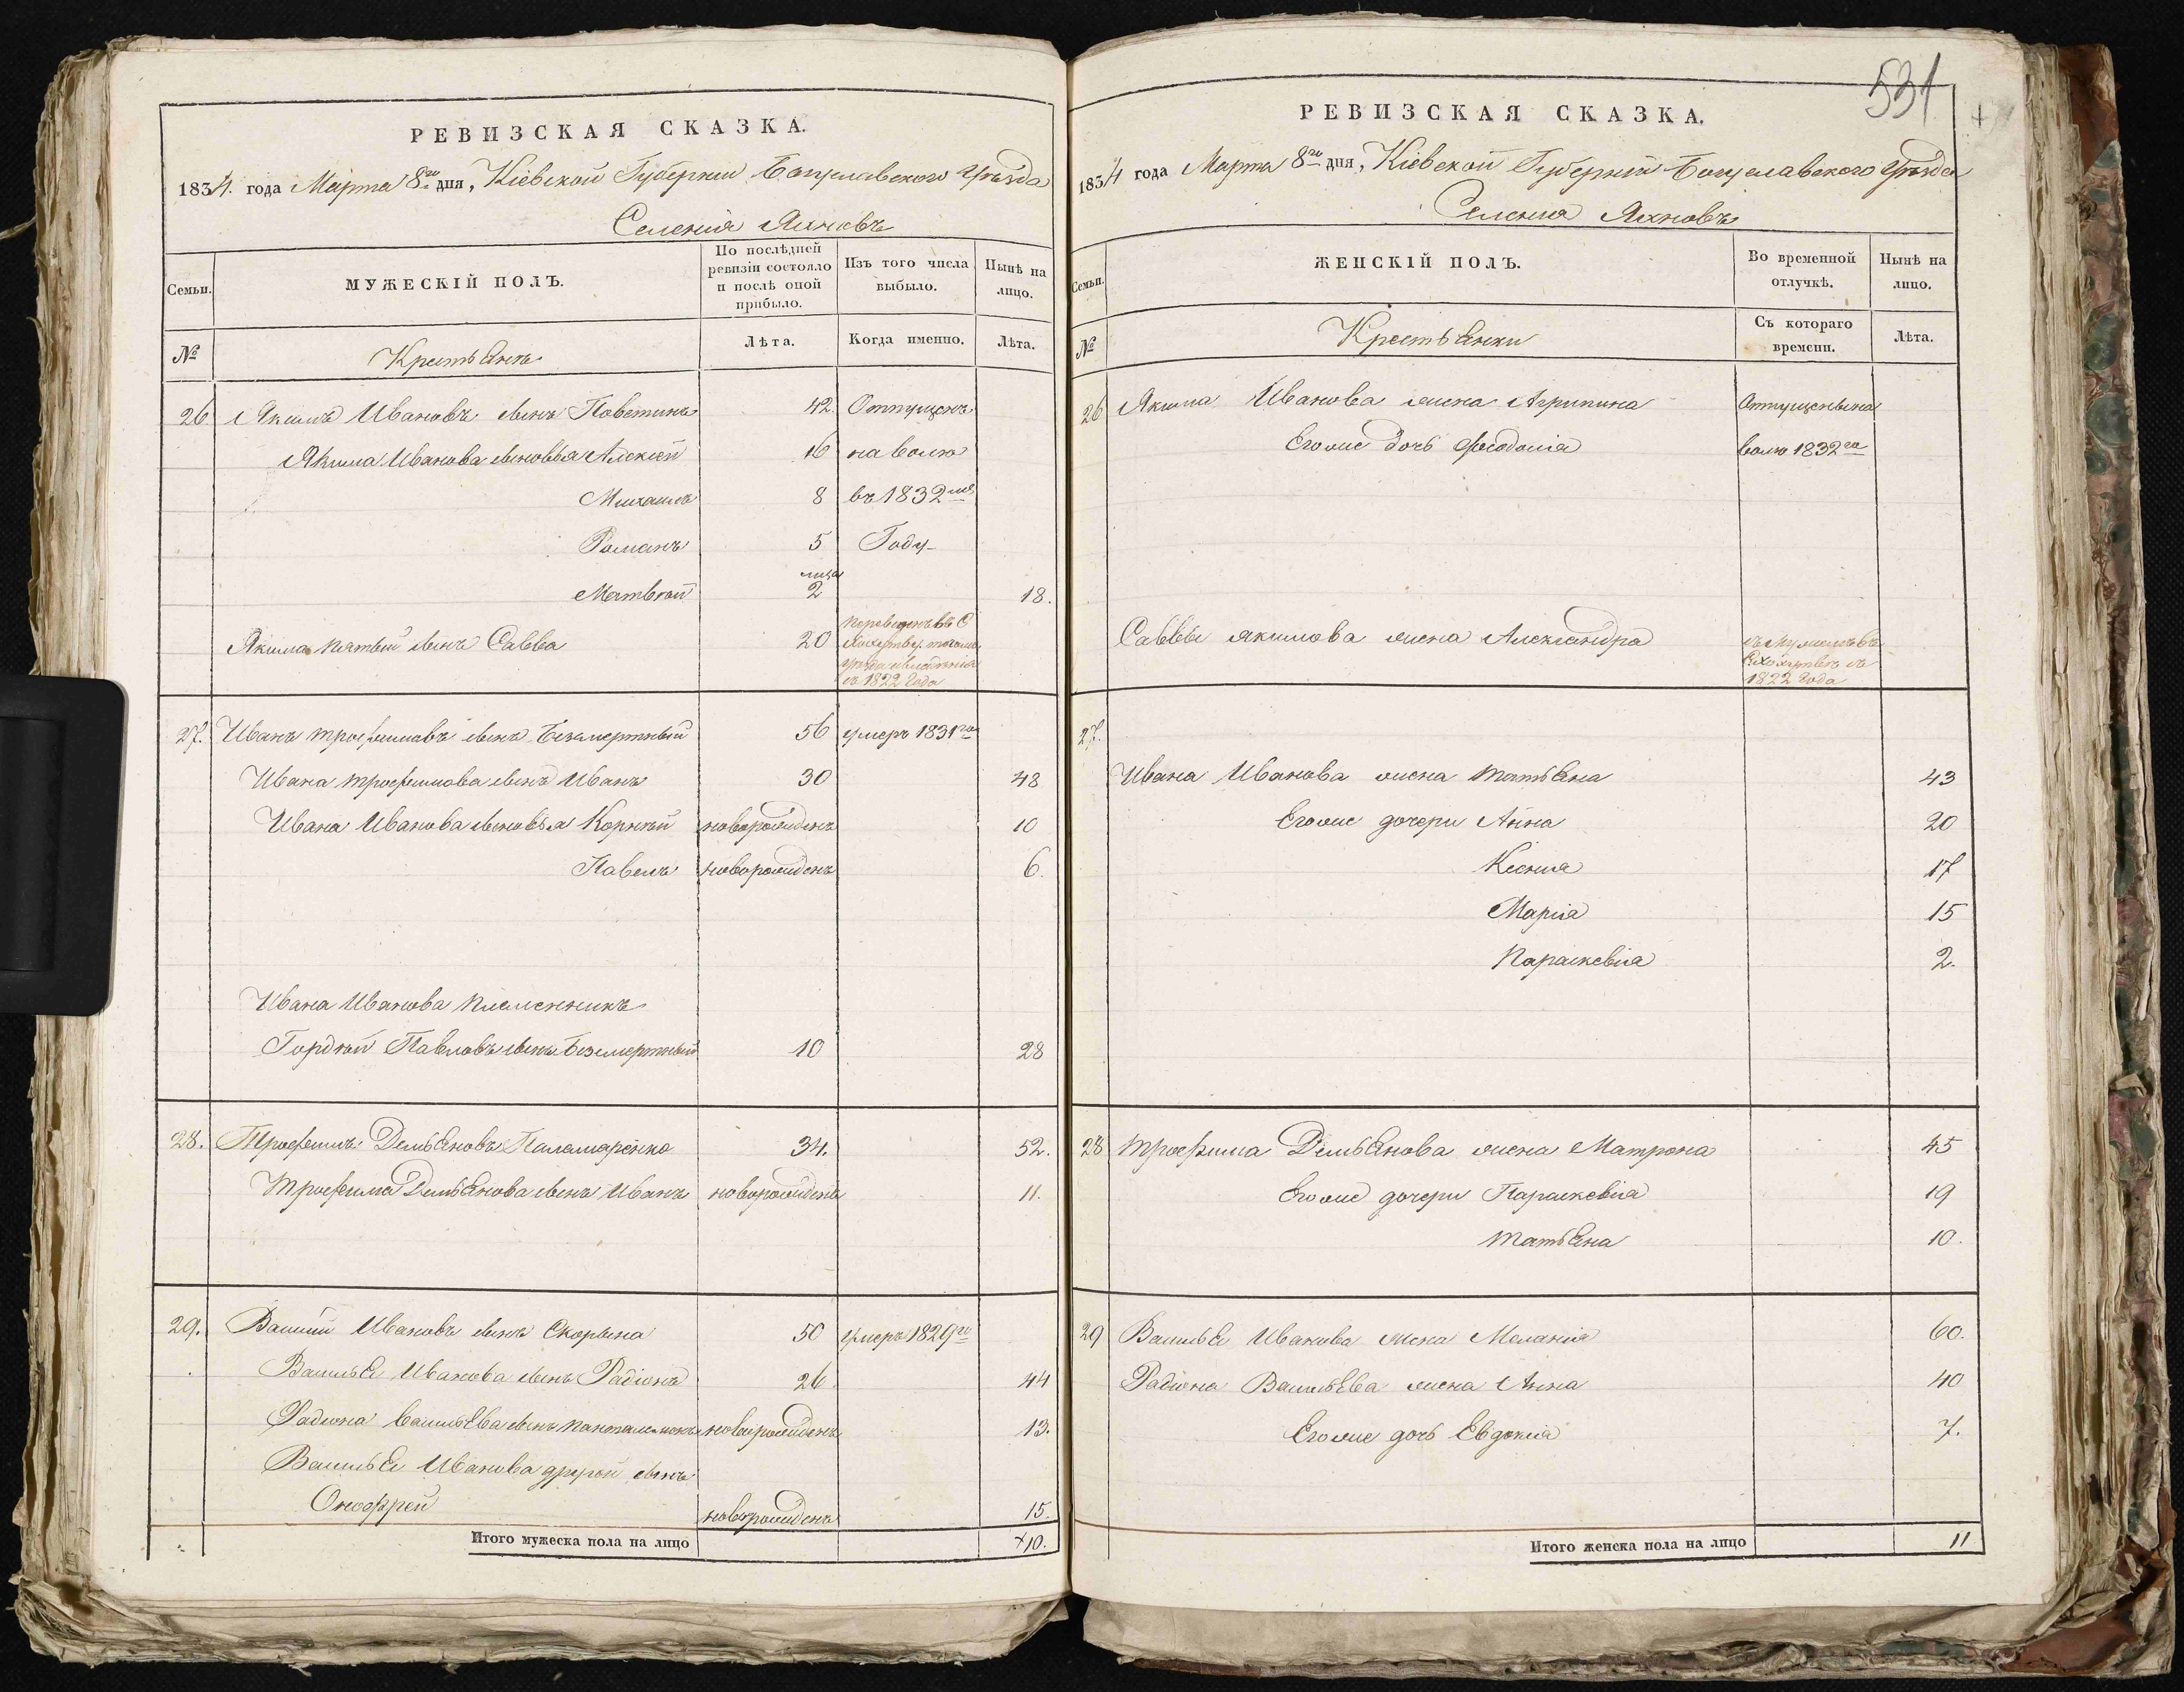 РЕВИЗСКАЯ СКАЗКА.
1834. года Марта 8го дня, Кіевской Губерніи Богуславского Уѣзда
Селенія Яхновъ
Семьи.
МУЖЕСКІЙ ПОЛЪ.
По послѣдней ревизіи состояло и послѣ оной прибыло.
Изъ того числа выбыло.
Нынѣ на лицо.
№
Крестьяне
Лѣта.
Когда именно.
Лѣта.
26 Якимъ Ивановъ сынъ 42. Отпущенъ
Якима Иванова сыновья Алексѣй 16 на волю
Михаилъ 8 въ 1832мъ
Романъ 5 Году
Матвѣй 2 18.
Якима пятый сынъ Савва 20
съ 1822 года
27. Иванъ Трофимовъ сынъ Безсмертный 56 умеръ 1831го
Ивана Трофимова сынъ Иванъ 30 48
Ивана Иванова сыновья Корнѣй новорожденъ 10
Павелъ новорожденъ 6.
Ивана Иванова племенникъ
Гордѣй Павловъ сынъ Безсмертный 10 28
28. Трофимъ Демьяновъ Паламаренко 34. 52.
Трофима Демьянова сынъ Иванъ новорожденъ 11.
29. Василій Ивановъ сынъ Скорына 50 умеръ 1829го
Василья Иванова сынъ Радіонъ 26. 44
Радіона Васильева сынъ Панталемонъ новорожденъ 13.
Василья Иванова другой сынъ
Онофрей новорожденъ 15.
Итого мужеска пола на лицо +10.
531
РЕВИЗСКАЯ СКАЗКА.
1834 года Марта 8го дня, Кіевской Губерніи Богуславского Уѣзда
Селенія Яхновъ
Семьи.
ЖЕНСКІЙ ПОЛЪ.
Во временной отлучкѣ.
Нынѣ на лицо.
№
Крестьянки
Съ котораго времени.
Лѣта.
26 Якима Иванова жена Агрипина Отпущены на
Егоже дочь Феодосія волю 1832го
Саввы Якимова жена Александра съ мужемъ въ
1822 года
27.
Ивана Иванова жена Татьяна 43
Егоже дочери Анна 20
Ксенія 17
Марія 15
Параскевія 2.
28 Трофима Демьянова жена Матрона 45
Егоже дочери Параскевія 19
Татьяна 10.
29 Василья Иванова жена Меланія 60.
Радіона Васильева жена Анна 40
Егоже дочь Евдокія 7.
Итого женска пола на лицо 11